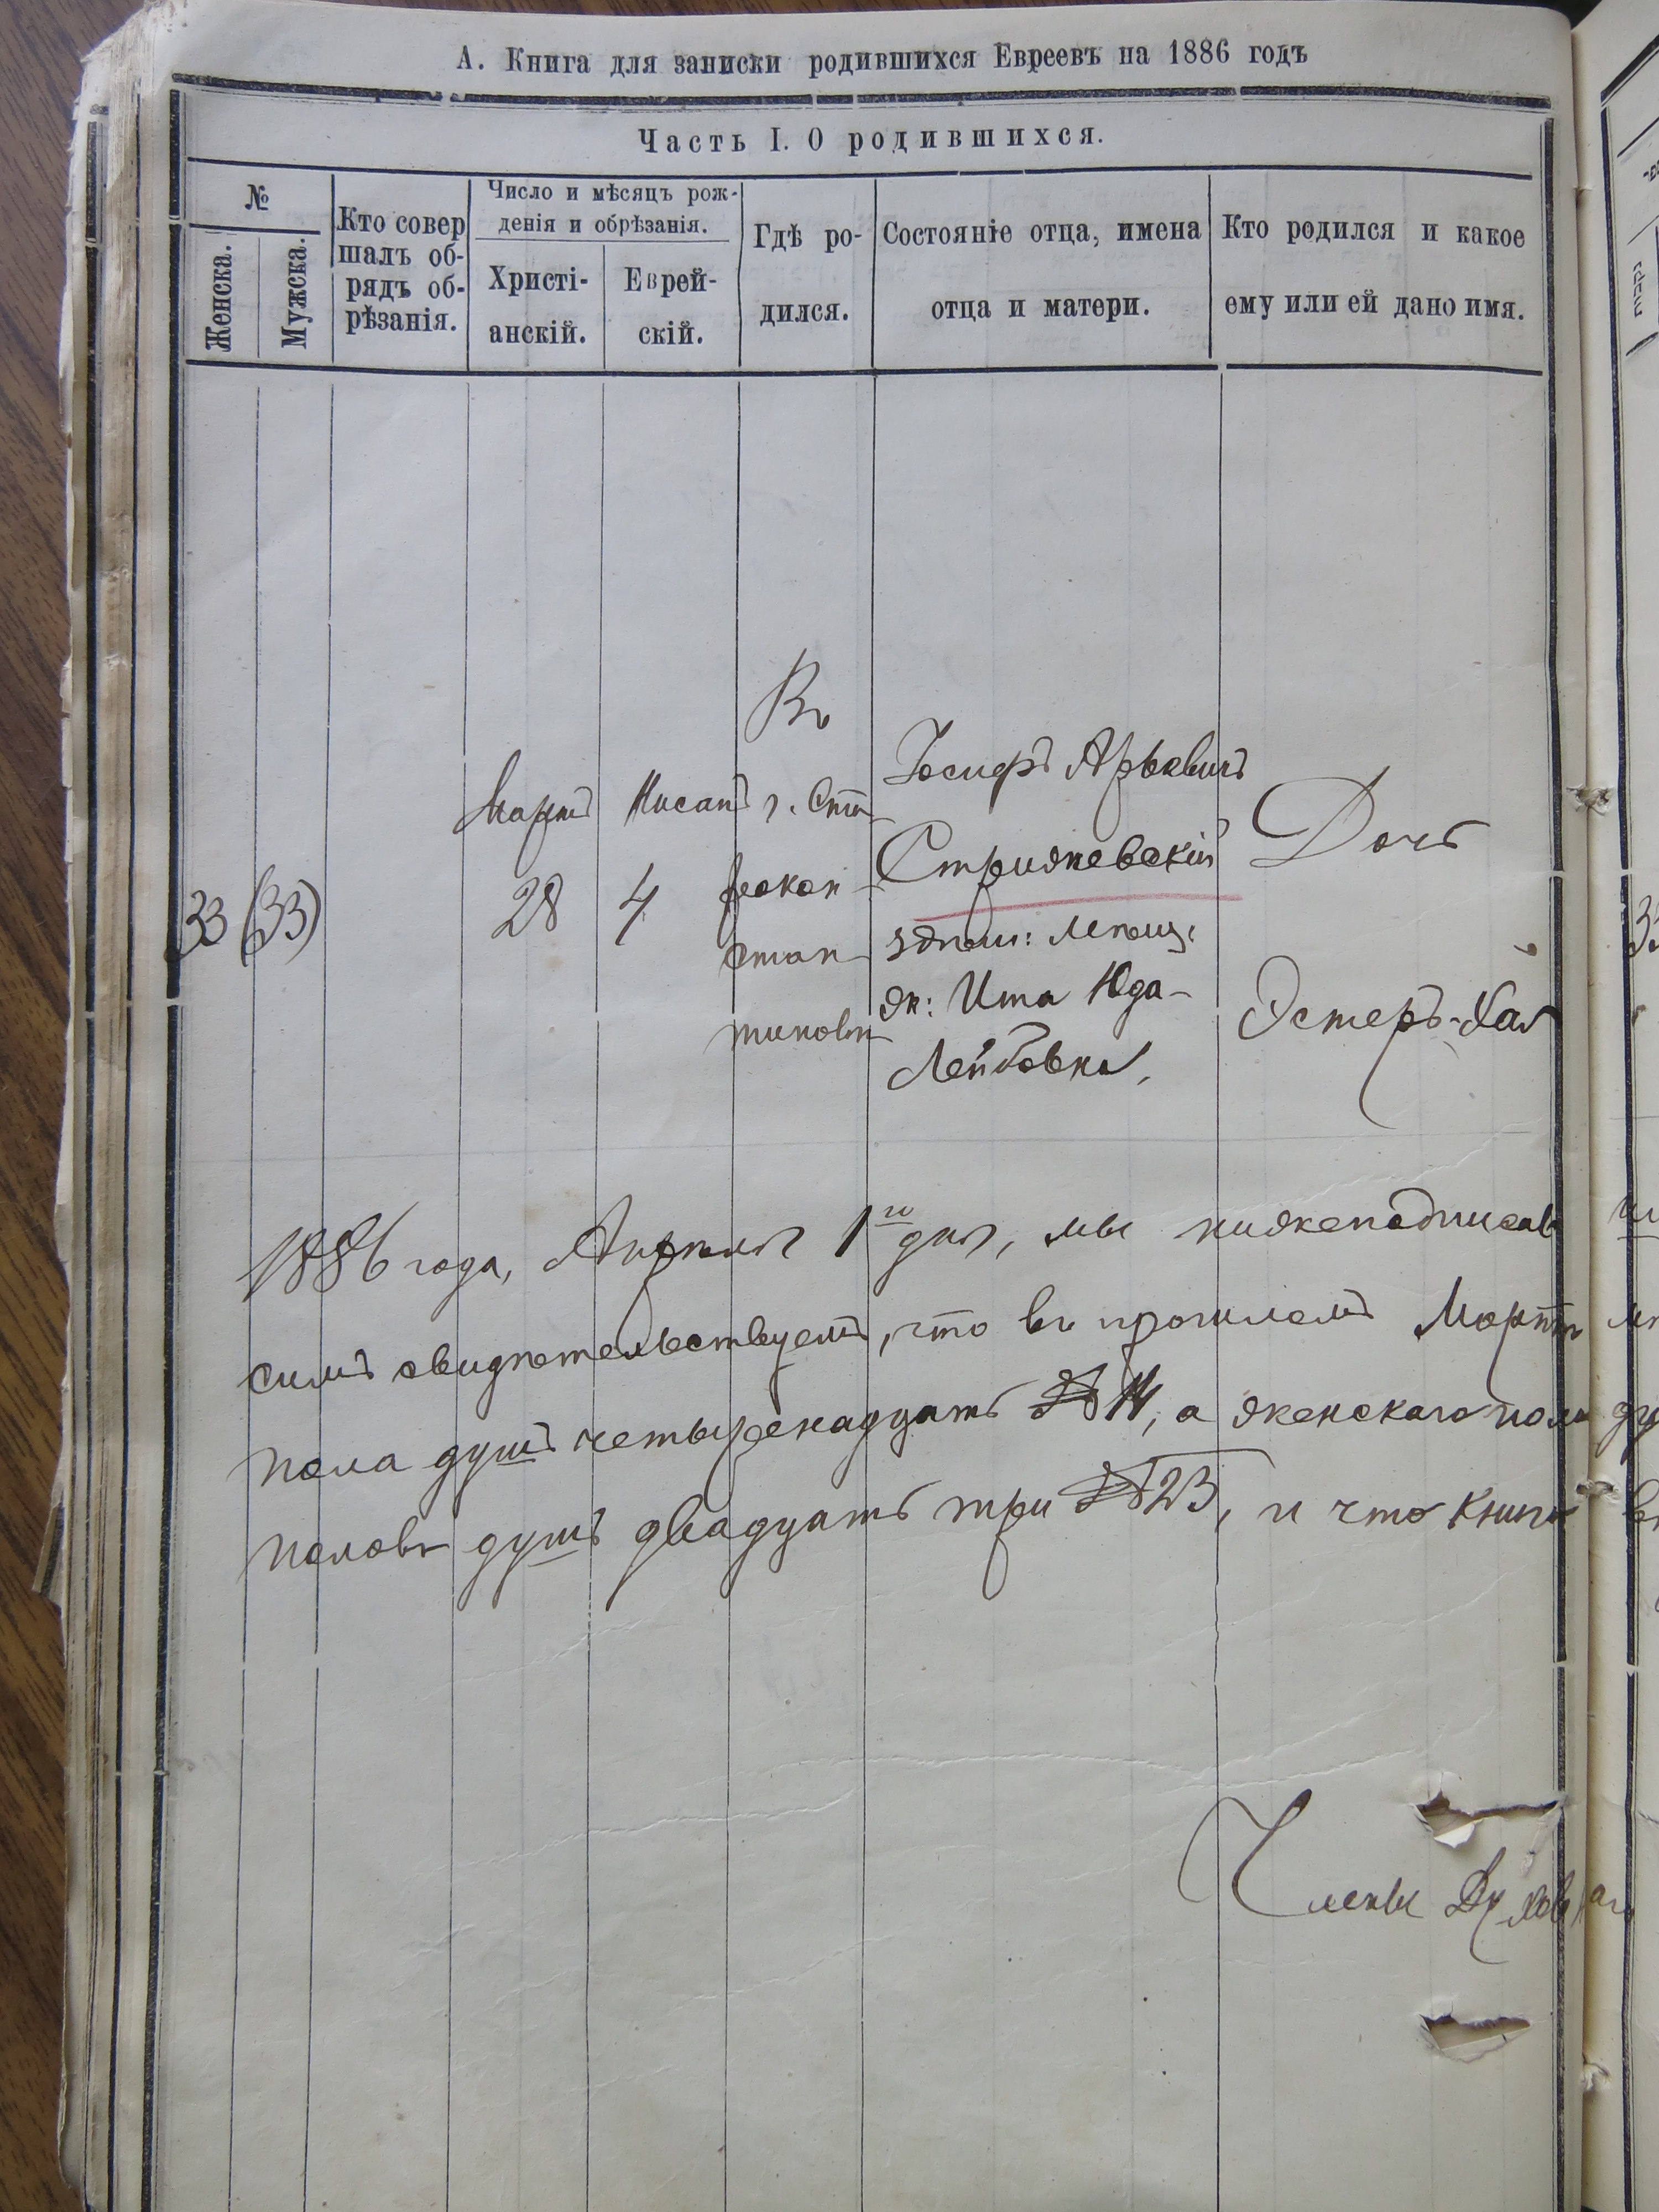 А. Книга для записки родившихся Евреевъ на 1886 годъ
Часть I. О родившихся.
№
Женска.
Мужска.
Кто совер
шалъ об-
рядъ об-
рѣзанія.
Число и мѣсяцъ рож-
денія и обрѣзанія.
Христі-
анскій.
Еврей-
скій.
Гдѣ ро-
дился.
Состояніе отца, имена
отца и матери.
Кто родился и какое
ему или ей дано имя.
33 (33)
Мартъ
28
Нисанъ
4
Въ
г. Ста
рокон
стан
тиновѣ
Іосифъ Арьевичъ
Стрижевскій
здѣш: мѣщ:
ж: Ита Юда-
Лейбовна,
Дочь
Эстеръ-Хая
1886 года, Апрѣля 1го дня, мы нижеподписав
симъ свидѣтельствуемъ, что въ прошломъ Мартѣ
пола душъ четырнадцать № 14, а женскаго пола
половъ душъ двадцать три № 23, и что книга
Члены Духовнаго